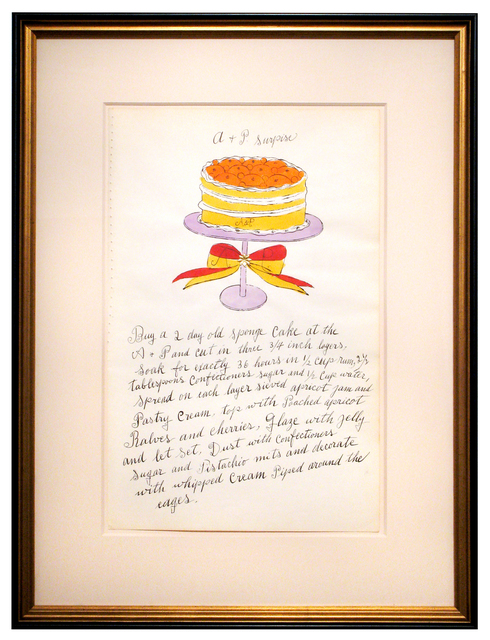 A + P Surpise
A+P
Buy a 2 day old sponge cake at the
A + P and cut in three 3/4 inch layers,
Soak for exactly 36 hours in ½ cup rum, 2½
tablespoons Confectioners sugar and ½ Cup water,
spread on each layer sieved apricot jam and
Pastry Cream. top with Poached apricot
Halves and cherries, Glaze with jelly
and let set. Dust with confectioners
sugar and Pistachio nuts and decorate
with whipped Cream Piped around the
edges.